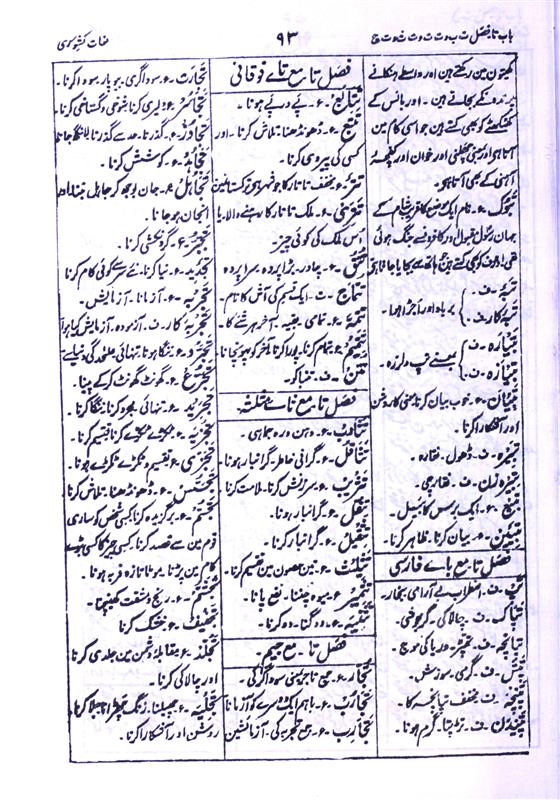 باب تا فصل ت ب و ت ت و ت ث و ت ج
۹۳
لغات کشوری
کھیتون مین رکھتے ہین اور واسطے ہنکانے
پرندون کے بجاتے ہین۔ اور بانس کے
کھٹکھٹے کو بھی کہتے ہین جو اسی کام مین
آتا ہے اور بمعنی چھلنی اور خوان اور
آہنی کے بھی آتا ہے۔
تبوک۔ ع۔ نام ایک موضع کا قریب شام کے
جہان رسول مقبول اور کافرون سے جنگ ہوئی
تھی
تبہ۔ ف۔
تبہ کار۔ ف۔
برباد اور اجڑا ہوا۔
تبیازہ۔ ف۔
بمعنے تپ و لرزہ۔
تبیان۔ ع۔ خوب بیان کرنا معنی کا روشن
اور آشکارا کرنا۔
تبیرہ۔ ف۔ ڈھول۔ نقارہ۔
تبیرہ زن۔ ف۔ نقارچی۔
تبیع۔ ع۔ ایک برس کا بیل۔
تبیین۔ ع۔ بیان کرنا۔ ظاہر کرنا۔
فصل تا مع باے فارسی
تپ۔ ف۔ اضطراب بے آرامی بخار۔
تپاک۔ ف۔ چالاکی۔ گرمجوشی۔
تپانچہ۔ ف۔ تھپڑ۔ دریا کی موج۔
تپش۔ ف۔ گرمی۔ سوزش۔
تپنچہ۔ ف۔ مخفف تپانچہ کا۔
تپیدن۔ ف۔ تڑپنا۔ گرم ہونا۔
فصل تا مع تاے فوقانی
تتابع۔ ع۔ پے در پے ہونا۔
تتبع۔ ع۔ ڈھونڈھنا۔ تلاش کرنا۔ اور
کسی کی پیروی کرنا۔
تتر۔ ع۔ مخفف تاتار کا جو شہر ہے ترکستان مین
تتری۔ ع۔ ملک تاتار کا رہنے والا۔ یا
اُس ملک کی کوئی چیز۔
تتق۔ ع۔ چادر۔ بڑا پردہ۔ سراپردہ
تتماج۔ ت۔ ایک قسم کی آش کا نام۔
تتمہ۔ ع۔ تمامی۔ بقیہ۔ آخر ہر شے کا۔
تتمیم۔ ع۔ تمام کرنا۔ پورا کرنا۔ آخر کو پہونچانا
تتن۔ ف۔ تنباکو۔
فصل تا مع ثاے مثلثہ
تثاوب۔ ع۔ دہن درہ۔ جماہی۔
تثاقل۔ ع۔ گرانی خاطر۔ گرانبار ہونا۔
تثریب۔ ع۔ سرزنش کرنا۔ ملامت کرنا
تثقل۔ ع۔ گرانبار ہونا۔
تثقیل۔ ع۔ گرانبار کرنا۔
تثلیث۔ ع۔ تین حصون مین تقسیم کرنا۔
تثمیر۔ ع۔ میوہ چننا۔ نفع پانا۔
تثنیہ۔ ع۔ دوگنا۔ دو کرنا۔
فصل تا۔ مع جیم۔
تجار۔ ع۔ جمع تاجر بمعنی سوداگر کی۔
تجارب۔ ع۔ باہم ایک دوسرے کو آزمانا
تجارب۔ ع۔ جمع تجربہ کی۔ آزمائشین
تجارت۔ ع۔ سوداگری۔ بیوپار۔ سودا کرنا۔
تجاسر۔ ع۔ دلیری کرنا۔ شوخی و گستاخی کرنا۔
تجاوز۔ ع۔ گذرنا۔ حد سے گذرنا یا لانگھ جانا
تجاہد۔ ع۔ کوشش کرنا۔
تجاہل۔ ع۔ جان بوجھ کر جاہل بننا۔ اور
انجان ہو جانا۔
تجبر۔ ع۔ گردنکشی کرنا۔
تجدید۔ ع۔ نیا کرنا۔ نئے سرے کوئی کام کرنا
تجربہ۔ ع۔ آزمانا۔ آزمایش۔
تجربہ کار۔ ف۔ آزمودہ۔ آزمایش کیا ہوا
تجرد۔ ع۔ ننگا ہونا۔ تنہائی علیحدگی دنیا سے
تجرع۔ ع۔ گھونٹ گھونٹ کر کے پینا۔
تجرید۔ ع۔ تنہائی۔ مجرد کرنا۔ ننگا کرنا۔
تجزیہ۔ ع۔ ٹکڑے ٹکڑے کرنا۔ تقسیم کرنا۔
تجزی۔ ع۔ تقسیم و ٹکڑے ٹکڑے ہونا۔
تجسس۔ ع۔ ڈھونڈھنا۔ تلاش کرنا
تجشم۔ ع۔ برگزیدہ کرنا کسی شخص کو ساری
قوم مین سے قصد کرنا۔ کسی چیز کا کسی بڑے
کام مین پڑنا۔ موٹا تازہ فربہ ہونا۔
تجشم۔ ع۔ رنج و مشقت کھینچنا۔
تجفیف۔ ع۔ خشک کرنا
تجلد۔ ع۔ مقابلہ دشمن مین جلدی کرنا
اور چالاکی کرنا۔
تجلیہ۔ ع۔ جھیلنا۔ زنگ چھڑانا۔ جلا کرنا۔
روشن اور آشکارا کرنا۔